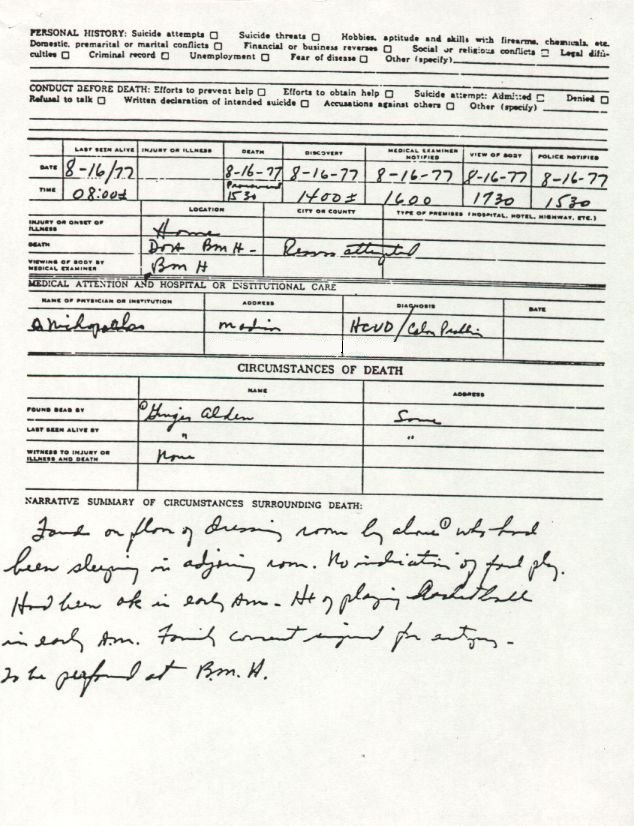 PERSONAL HISTORY: Suicide attempts □ Suicide threats □ Hobbies, aptitude and skills with firearms, chemicals, etc.
Domestic, premarital or marital conflicts □ Financial or business reverses □ Social or religious conflicts □ Legal diffi-
culties □ Criminal record □ Unemployment □ Fear of disease □ Other (specify)
CONDUCT BEFORE DEATH: Efforts to prevent help □ Efforts to obtain help □ Suicide attempt: Admitted □ Denied □
Refusal to talk □ Written declaration of intended suicide □ Accusations against others □ Other (specify)
LAST SEEN ALIVE INJURY OR ILLNESS DEATH DISCOVERY MEDICAL EXAMINER NOTIFIED VIEW OF BODY POLICE NOTIFIED
DATE 8-16/77 8-16-77 8-16-77 8-16-77 8-16-77 8-16-77
TIME 08:00± Pronounced 1530 1400± 1600 1730 1530
LOCATION CITY OR COUNTY TYPE OF PREMISES (HOSPITAL, HOTEL, HIGHWAY, ETC.)
INJURY OR ONSET OF ILLNESS Home
DEATH DOA BMH - Resus attempted
VIEWING OF BODY BY MEDICAL EXAMINER BMH
MEDICAL ATTENTION AND HOSPITAL OR INSTITUTIONAL CARE
NAME OF PHYSICIAN OR INSTITUTION ADDRESS DIAGNOSIS DATE
Nichopoulos Madison HCVD/Colon Problem
CIRCUMSTANCES OF DEATH
NAME ADDRESS
FOUND DEAD BY ① Ginger Alden Same
LAST SEEN ALIVE BY " "
WITNESS TO INJURY OR ILLNESS AND DEATH None
NARRATIVE SUMMARY OF CIRCUMSTANCES SURROUNDING DEATH:
Found on floor of dressing room by above ① who had
been sleeping in adjoining room. No indication of foul play.
Had been ok in early AM - Hx of playing Racketball
in early AM. Family consent signed for autopsy -
To be performed at B.M.H.